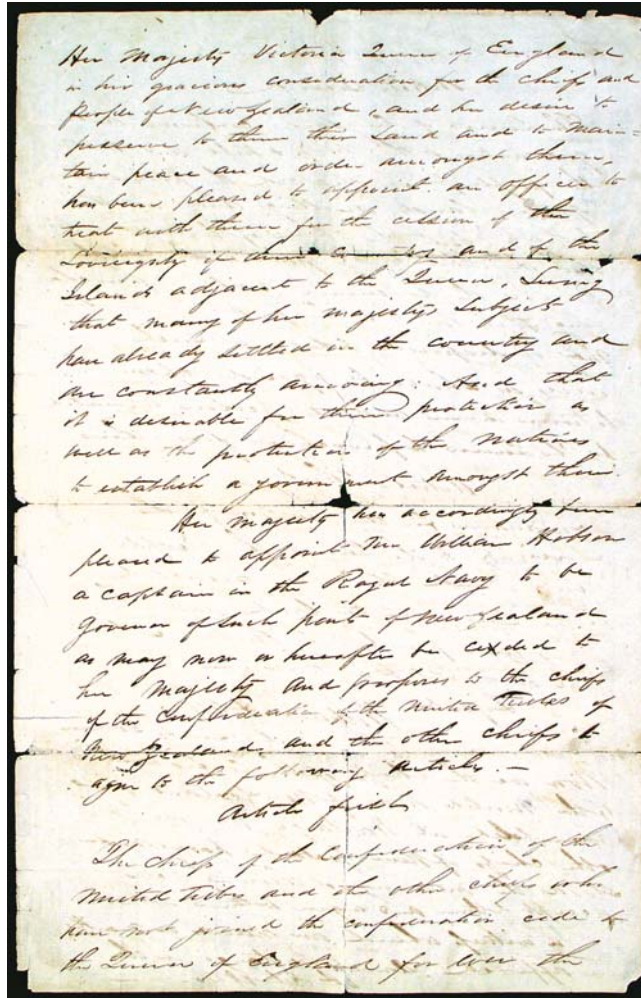 Her Majesty Victoria Queen of England
in her gracious consideration for the chiefs and
People of New Zealand, and her desire to
preserve to them their Land and to main-
tain peace and order amongst them,
has been pleased to appoint an officer to
treat with them for the cession of the
Sovreignty of their and of the
Islands adjacent to the Queen. Seeing
that many of her Majesty's Subjects
have already settled in the country and
are constantly arriving: And that
it is desirable for their protection as
well as the protection of the natives
to establish a government amongst them.
Her Majesty has accordingly been
pleased to appoint me William Hobson
a captain in the Royal Navy to be
Governor of such parts of New Zealand
as may now or hereafter be ceded to
her Majesty and proposes to the chiefs
of the confederation of the united tribes of
New Zealand and the other chiefs to
agree to the following articles.—
Article first
The chiefs of the Confederation of the
united tribes and the other chiefs who
have not joined the confederation cede to
the Queen of England for ever the